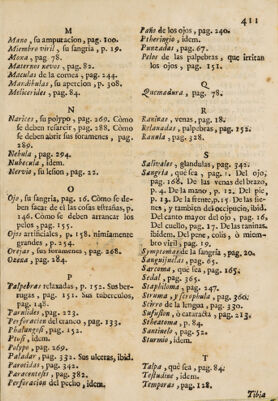 411
M
Mano, su amputacion, pag. 100.
Miembro viril, su sangria, p. 19.
Moxa, pag. 78.
Maternos nevos, pag. 82.
Maculas de la cornea, pag. 244.
Mandibulas, su apercion, p. 308.
Melicerides, pag. 84.
N
Narices, su polypo, pag. 269. Cómo
se deben resarcir, pag. 288. Cómo
se deben abrir sus foramenes, pag.
289.
Nebula, pag. 294.
Nubecula, idem.
Nervio, su lesion, pag. 22.
O
Ojo, su sangria, pag. 16. Cómo se de-
ben sacar de él las cosas estrañas, p.
146. Cómo se deben arrancar los
pelos, pag. 155.
Ojo artificial, p. 158. nimiamente
grandes, p. 254.
Orejas, sus foramenes, pag. 268.
Ozena, pag. 284.
P
Palpebras relaxadas, p. 152. Sus ber-
rugas, pag. 151. Sus tuberculos,
pag. 148.
Parulides, pag. 223.
Perforacion del craneo, pag. 133.
Phalangosi, pag. 152.
Ptosi, idem.
Polypo, pag. 269.
Paladar, pag. 332. Sus ulceras, ibid.
Parotidas, pag. 342.
Paracentesis, pag. 382.
Perforacion del pecho, idem.
Paño de los ojos, pag. 240.
Ptheringio, idem.
Punzadas, pag. 67.
Pelos de las palpebras, que irritan
los ojos, pag. 151.
Q
Quemadura, pag. 78.
R
Raninas, venas, pag. 18.
Relaxadas, palpebras, pag. 152.
Ranula, pag. 328.
S
Salivales, glandulas, pag. 342.
Sangria, qué sea, pag. 1. Del ojo,
pag. 168. De las venas del brazo,
p. 4. De la mano, p. 12. Del pie,
p. 13. De la frente, p. 15. De las sie-
nes, y tambien del occipucio, ibid.
Del canto mayor del ojo, pag. 16.
Del cuello, pag. 17. De las raninas.
ibidem. Del pene, colis, ó miem-
bro viril, pag. 19.
Symptomas de la sangria, pag. 20.
Sanguijuelas, pag. 65.
Sarcoma, qué sea, pag. 165.
Sedal, pag. 365.
Staphiloma, pag. 247.
Struma, y scrophula, pag. 360.
Scirro de la lengua, pag. 330.
Sufusion, ó cataracta, pag. 213.
Stheatoma, p. 84.
Santiedo, pag. 52.
Sturmio, idem.
T
Talpa, qué sea, pag. 84.
Testudine, idem.
Temporas, pag. 128.
Tibia